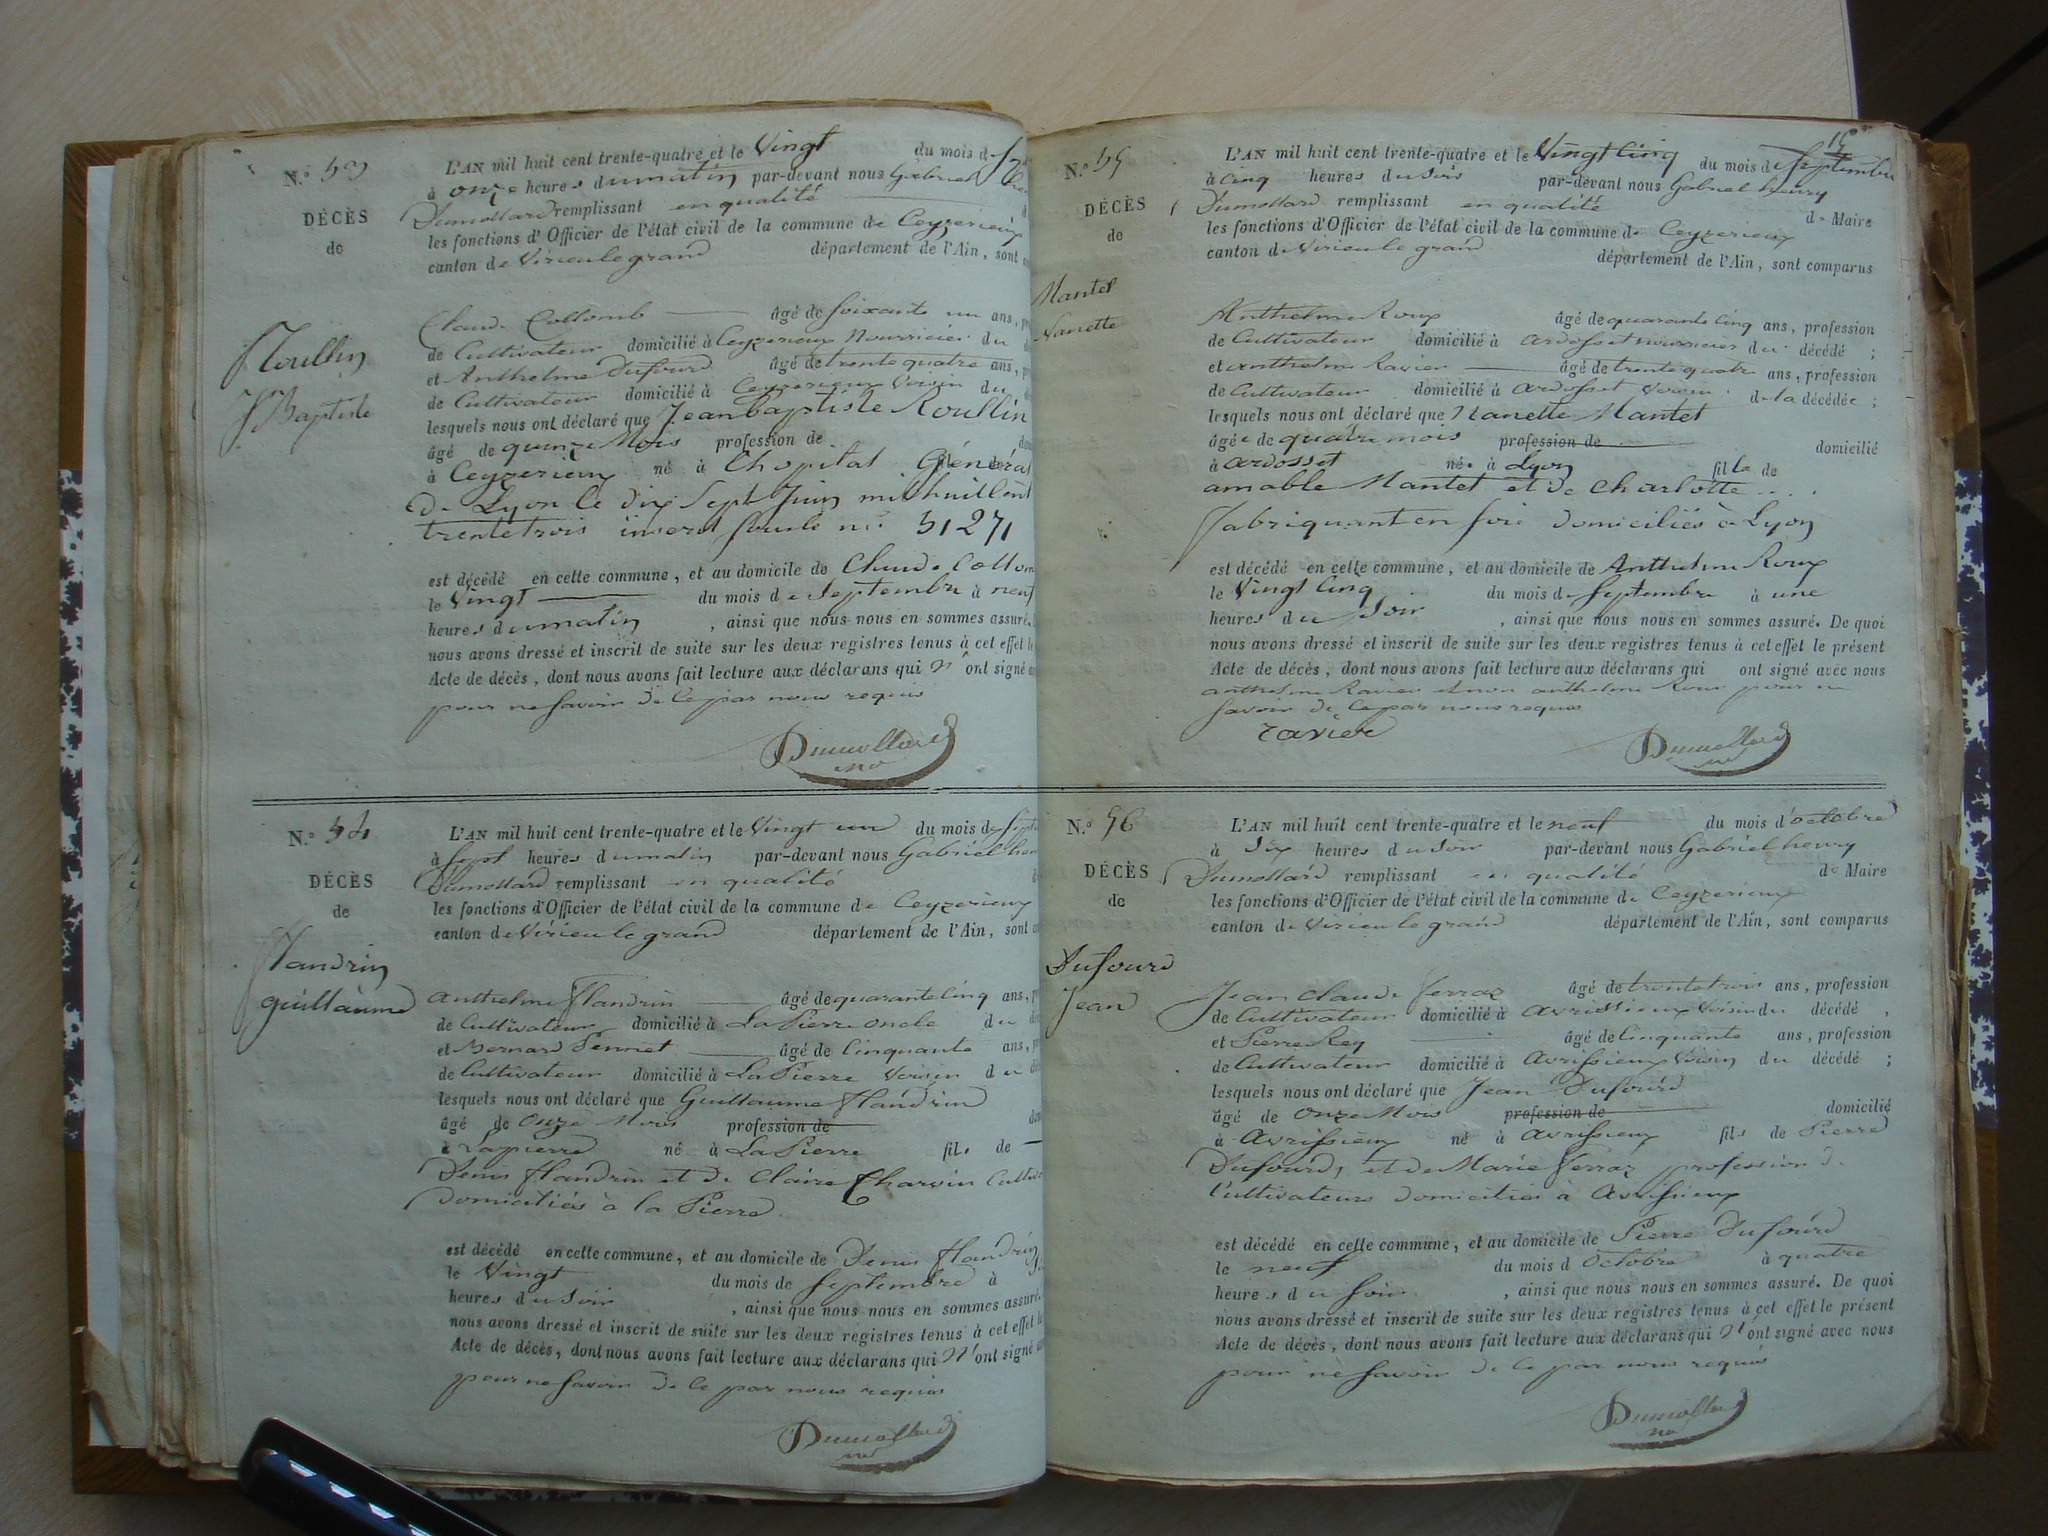 N.° 53
L'AN mil huit cent trente-quatre et le Vingt du mois de
à onze heures du matin par-devant nous Gabriel
DÉCÈS
Dumollard remplissant en qualité
de
les fonctions d'Officier de l'état civil de la commune de Ceyzerieux
canton de Virieu le grand département de l'Ain, sont
Roullin
J Baptiste
Claude Collomb âgé de soixante un ans,
de Cultivateur domicilié à Ceyzerieux Nourricier du
et Anthelme Dufourd âgé de trente quatre ans,
de Cultivateur domicilié à Ceyzerieux Voisin du
lesquels nous ont déclaré que Jean baptiste Roullin
âgé de quinze Mois profession de
à Ceyzerieux né à Lhopital Général
de Lyon le dix Sept Juin mil huit Cent
trente trois inscrit sous le n° 51271
est décédé en cette commune, et au domicile de Claude Collom
le Vingt du mois de Septembre à neuf
heures du matin, ainsi que nous nous en sommes assuré.
nous avons dressé et inscrit de suite sur les deux registres tenus à cet effet le
Acte de décès, dont nous avons fait lecture aux déclarans qui N'ont signé
pour ne Savoir de Ce par nous requis
Dumollard
N.° 54
L'AN mil huit cent trente-quatre et le Vingt un du mois de Sept
à Sept heures du matin par-devant nous Gabriel hen
DÉCÈS
Dumollard remplissant en qualité
de
les fonctions d'Officier de l'état civil de la commune de Ceyzerieux
canton de Virieu le grand département de l'Ain, sont
flandrin
guillaume
Anthelme flandrin âgé de quarante Cinq ans,
de Cultivateur domicilié à La Pierre oncle du
et Bernard Pennet âgé de Cinquante ans,
de Cultivateur domicilié à La Pierre Voisin du
lesquels nous ont déclaré que Guillaume flandrin
âgé de onze Mois profession de
à Lapierre né à La Pierre fils de
Denis flandrin et de Claire Charvin Cultiv
Domiciliés à la Pierre
est décédé en cette commune, et au domicile de Denis flandrin
le Vingt du mois de Septembre à
heures du Soir, ainsi que nous nous en sommes assuré.
nous avons dressé et inscrit de suite sur les deux registres tenus à cet effet le
Acte de décès, dont nous avons fait lecture aux déclarans qui N'ont signé
pour ne Savoir de Ce par nous requis
Dumollard
N.° 55
L'AN mil huit cent trente-quatre et le Vingt Cinq du mois de Septembre
à Cinq heures du Soir par-devant nous Gabriel henry
DÉCÈS
Dumollard remplissant en qualité de Maire
de
les fonctions d'Officier de l'état civil de la commune de Ceyzerieux
canton de Virieu le grand département de l'Ain, sont comparus
Mantet
Nanette
Anthelme Roux âgé de quarante Cinq ans, profession
de Cultivateur domicilié à ardosset nourricier du décédé ;
et anthelme Ravier âgé de trente quatre ans, profession
de Cultivateur domicilié à ardosset Voisin de la décédée ;
lesquels nous ont déclaré que Nanette Mantet
âgée de quatre mois profession de domicilié
à ardosset née à Lyon fille de
amable Mantet et de Charlotte
fabriquant en soie domiciliés à Lyon
est décédé en cette commune, et au domicile de Anthelme Roux
le Vingt Cinq du mois de Septembre à une
heures du Soir, ainsi que nous nous en sommes assuré. De quoi
nous avons dressé et inscrit de suite sur les deux registres tenus à cet effet le présent
Acte de décès, dont nous avons fait lecture aux déclarans qui ont signé avec nous
anthelme Ravier et non anthelme Roux pour ne
Savoir de Ce par nous requis
ravier
Dumollard
N.° 56
L'AN mil huit cent trente-quatre et le neuf du mois d'octobre
à Six heures du Soir par-devant nous Gabriel henry
DÉCÈS
Dumollard remplissant en qualité de Maire
de
les fonctions d'Officier de l'état civil de la commune de Ceyzerieux
canton de Virieu le grand département de l'Ain, sont comparus
Dufourd
Jean
Jean Claude ferraz âgé de trente trois ans, profession
de Cultivateur domicilié à Avrissieux Voisin du décédé
et Pierre Rey âgé de Cinquante ans, profession
de Cultivateur domicilié à Avrissieux Voisin du décédé ;
lesquels nous ont déclaré que Jean Dufourd
âgé de onze Mois profession de domicilié
à Avrissieux né à Avrissieux fils de Pierre
Dufourd, et de Marie ferraz profession de
Cultivateurs domiciliés à Avrissieux
est décédé en cette commune, et au domicile de Pierre Dufourd
le neuf du mois d'Octobre à quatre
heures du soir, ainsi que nous nous en sommes assuré. De quoi
nous avons dressé et inscrit de suite sur les deux registres tenus à cet effet le présent
Acte de décès, dont nous avons fait lecture aux déclarans qui N'ont signé avec nous
pour ne Savoir de Ce par nous requis
Dumollard